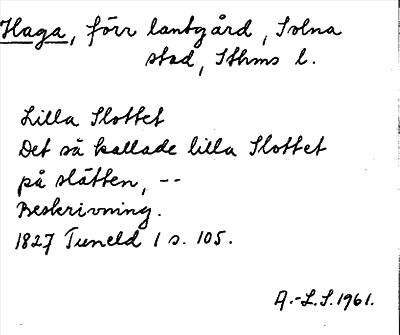 Haga, förr lantgård, Solna
stad, Sthms l.
Lilla Slottet
Det så kallade lilla Slottet
på slätten, --
Beskrivning.
1827 Tuneld 1 s. 105.
A.-L.S. 1961.